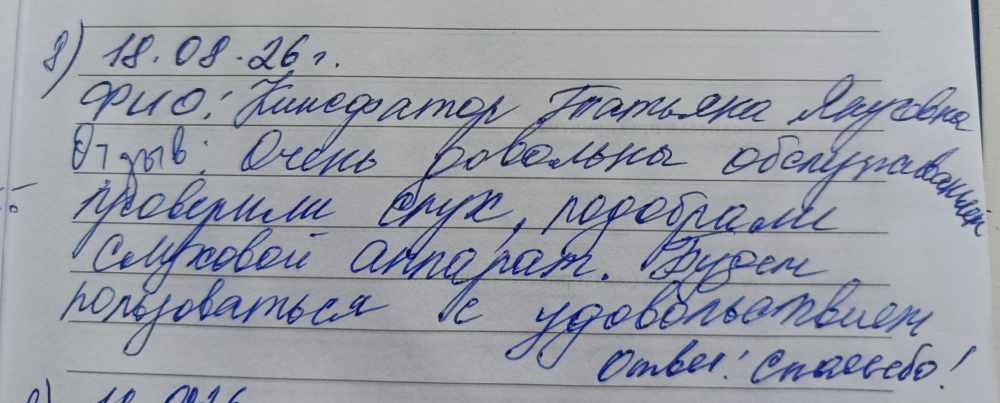 8) 18.08.26 г.
ФИО: Татьяна
Отзыв: Очень довольны обслуживанием
проверили слух, подобрали
слуховой аппарат. Будем
пользоваться с удовольствием
Ответ: Спасибо!